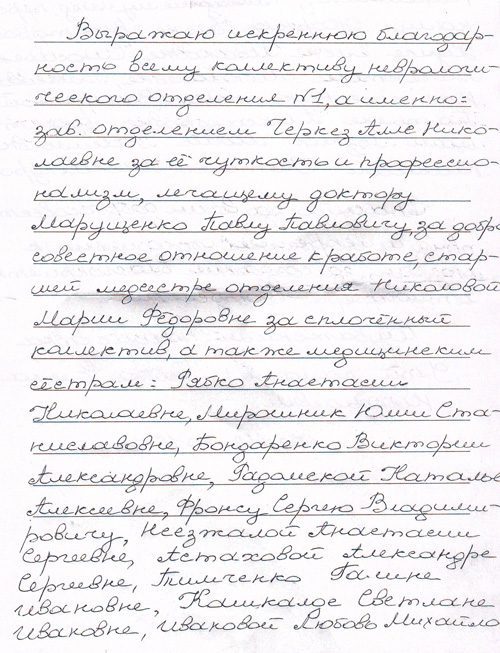 Выражаю искреннюю благодар-
ность всему коллективу неврологи-
ческого отделения №1, а именно:
зав. отделением Черкез Алле Нико-
лаевне за её чуткость и профессио-
нализм, лечащему доктору
Марущенко Павлу Павловичу, за добро
совестное отношение к работе, стар-
шей медсестре отделения Николовой
Марии Фёдоровне за сплочённый
коллектив, а также медицинским
сёстрам: Рябко Анастасии
Николаевне, Мирошник Юлии Ста-
ниславовне, Бондаренко Виктории
Александровне, Радомской Наталье
Алексеевне, Фронсу Сергею Владими-
ровичу, Неезжалой Анастасии
Сергеевне, Астаховой Александре
Сергеевне, Тимченко Галине
Ивановне, Кашкалде Светлане
Ивановне, Ивановой Любовь Михайло